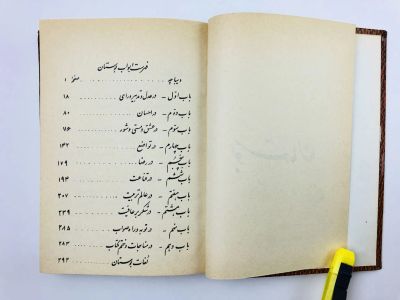 فهرست ابواب بوستان
دیباچه صفحهٔ ۱
باب اول - در عدل و تدبیر و رای ۱۸
باب دوم - در احسان ۸۰
باب سوم - در عشق و مستی و شور ۱۱۶
باب چهارم - در تواضع ۱۴۲
باب پنجم - در رضا ۱۷۹
باب ششم - در قناعت ۱۹۴
باب هفتم - در عالم تربیت ۲۰۷
باب هشتم - در شکر بر عافیت ۲۳۹
باب نهم - در توبه و راه صواب ۲۶۵
باب دهم - در مناجات و ختم کتاب ۲۸۴
لغات بوستان ۲۹۲